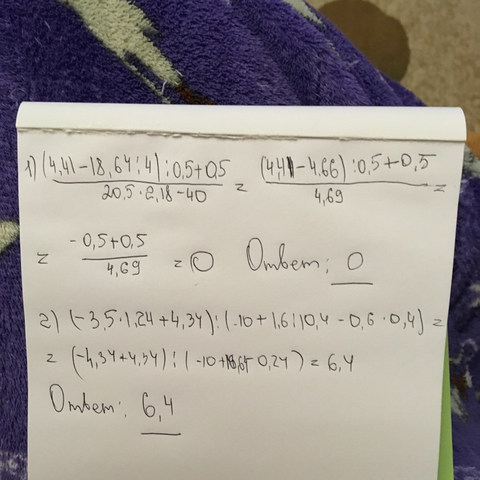 1) (4,41-18,64:4):0,5+0,5 / 20,5·2,18-40 = (4,41-4,66):0,5+0,5 / 4,69 =
= -0,5+0,5 / 4,69 = 0 Ответ: 0
2) (-3,5·1,24+4,34):(-10+1,6:10,4-0,6·0,4)=
= (-4,34+4,34):(-10+ 0,24)=6,4
Ответ: 6,4